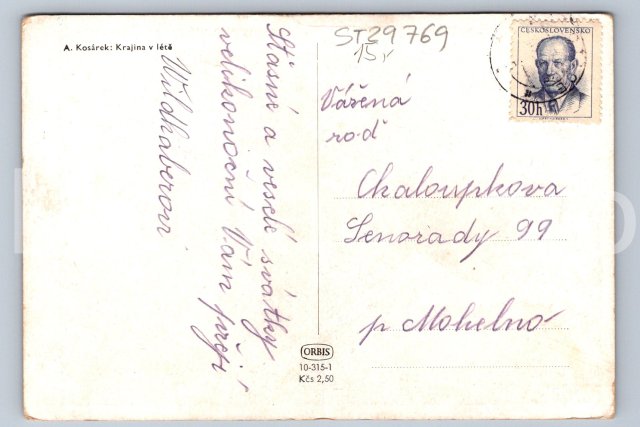 A. Kosárek: Krajina v létě
Šťasné a veselé svátky
velikonoční Vám přejí
Wildhaberovi
ST29769
15,-
ČESKOSLOVENSKO
30h
Vážená
rod
Chaloupkova
Senorady 99
p Mohelno
ORBIS
10-315-1
Kčs 2,50